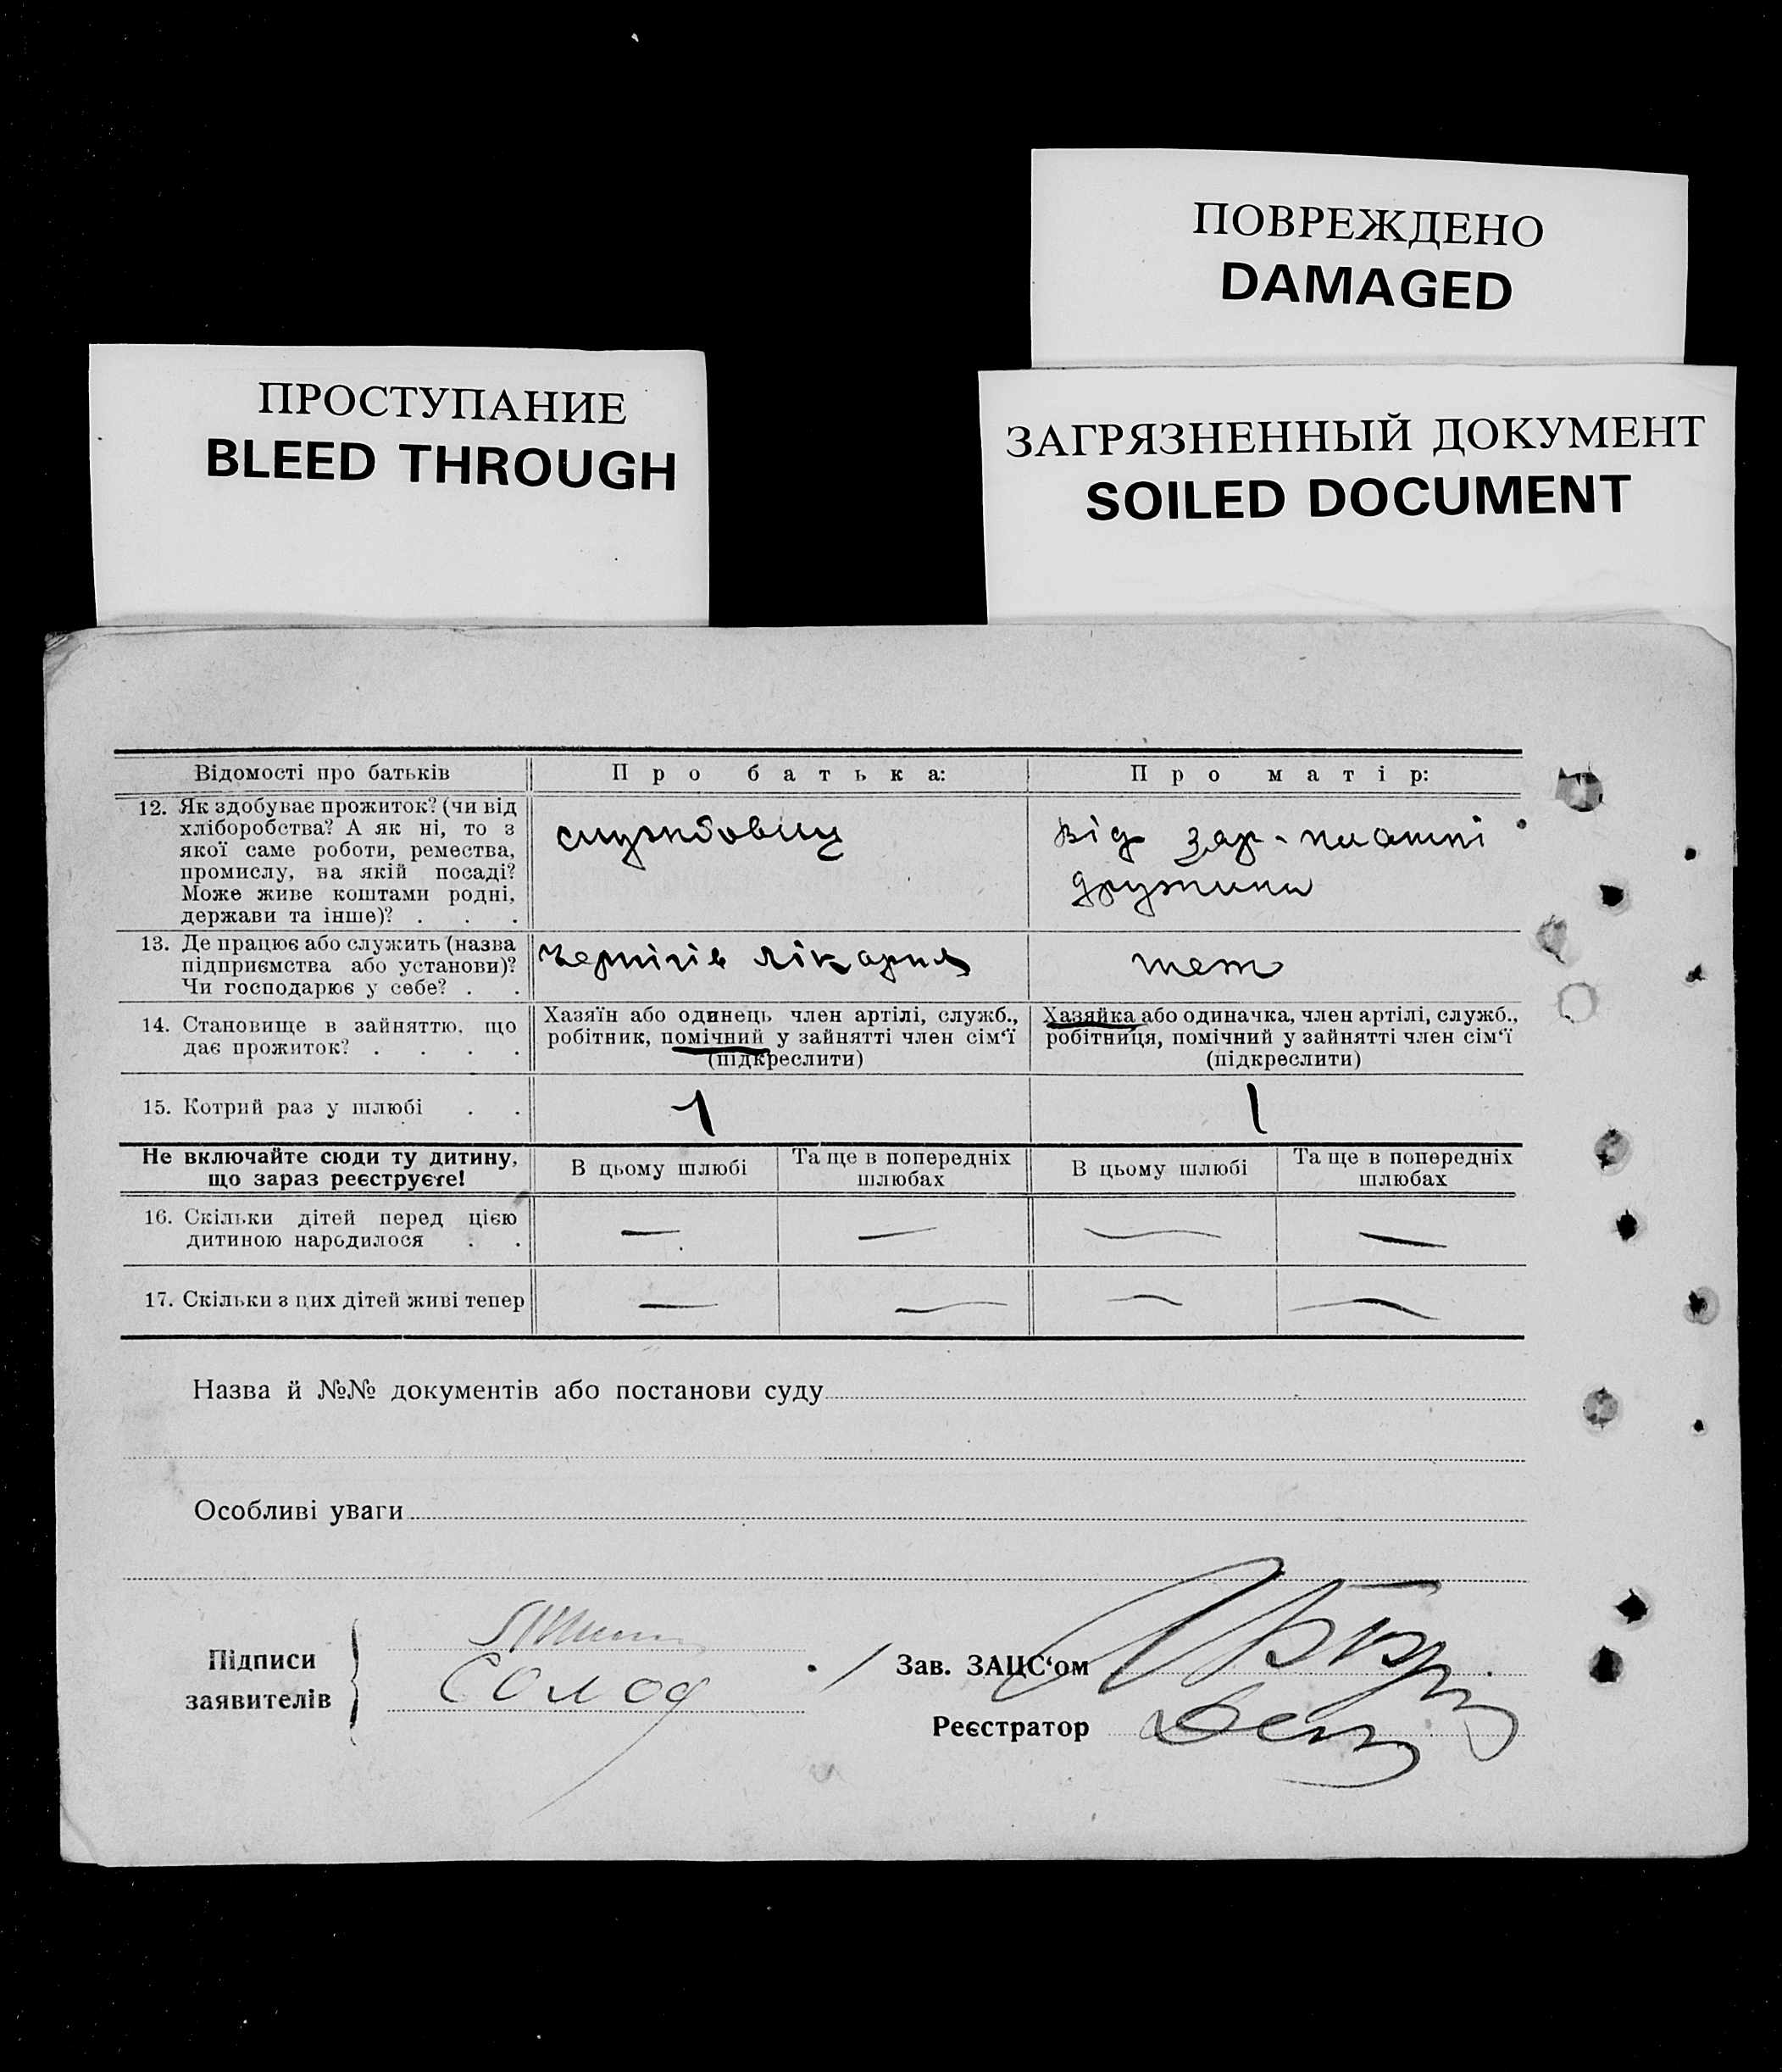 ПОВРЕЖДЕНО
DAMAGED
ПРОСТУПАНИЕ
BLEED THROUGH
ЗАГРЯЗНЕННЫЙ ДОКУМЕНТ
SOILED DOCUMENT
Відомості про батьків
Про батька:
Про матір:
12. Як здобуває прожиток? (чи від
хліборобства? А як ні, то з
якої саме роботи, ремества,
промислу, на якій посаді?
Може живе коштами родні,
держави та інше)? . . .
службовец
від зар-платні
дружини
13. Де працює або служить (назва
підприємства або установи)?
Чи господарює у себе? . .
Чернігів лікарня
теж
14. Становище в зайняттю, що
дає прожиток? . . . .
Хазяїн або одинець член артілі, служб.,
робітник, помічний у зайнятті член сім'ї
(підкреслити)
Хазяйка або одиначка, член артілі, служб.,
робітниця, помічний у зайнятті член сім'ї
(підкреслити)
15. Котрий раз у шлюбі . .
1
1
Не включайте сюди ту дитину,
що зараз реєструєте!
В цьому шлюбі
Та ще в попередніх
шлюбах
В цьому шлюбі
Та ще в попередніх
шлюбах
16. Скільки дітей перед цією
дитиною народилося . .
—
—
—
—
17. Скільки з цих дітей живі тепер
—
—
—
—
Назва й №№ документів або постанови суду
Особливі уваги
Підписи
заявителів
Солод
Зав. ЗАЦС'ом
Реєстратор